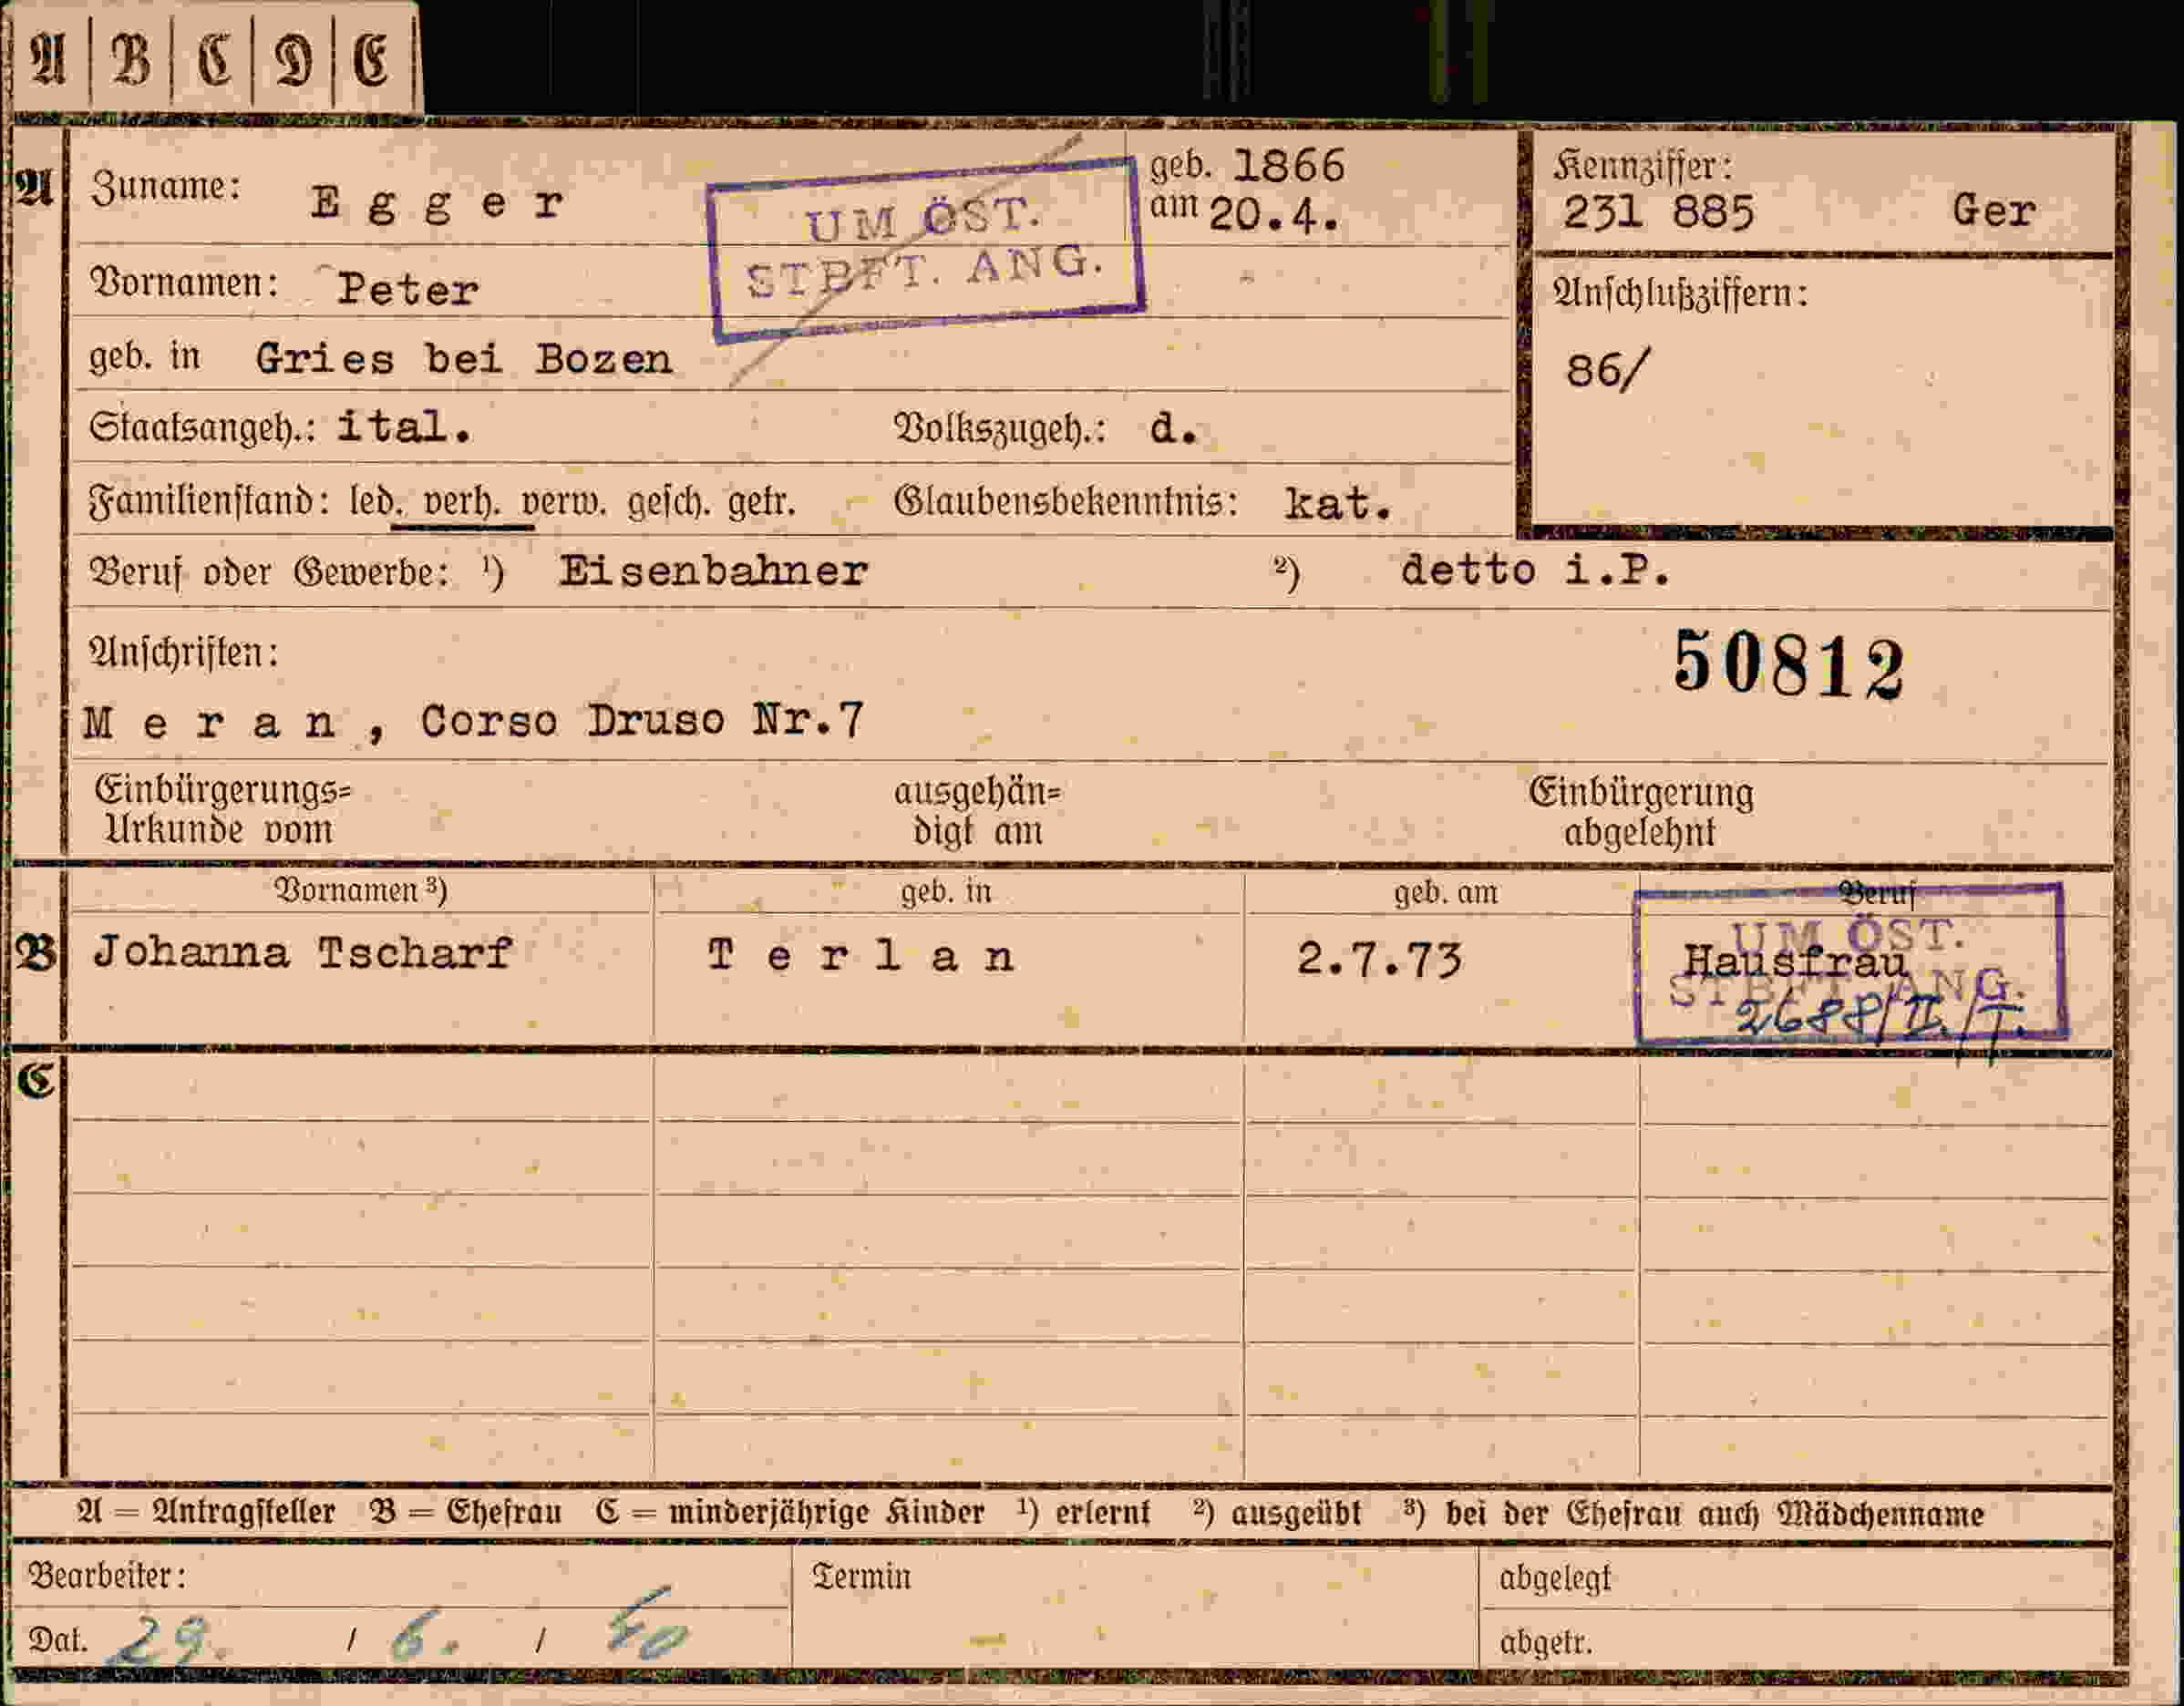 A B C D E
A Zuname: Egger
UM ÖST.
STBFT. ANG.
geb. 1866
am 20.4.
Kennziffer:
231 885 Ger
Vornamen: Peter
Anschlußziffern:
86/
geb. in Gries bei Bozen
Staatsangeh.: ital. Volkszugeh.: d.
Familienstand: led. verh. verw. gesch. getr. Glaubensbekenntnis: kat.
Beruf oder Gewerbe: ¹) Eisenbahner ²) detto i.P.
Anschriften:
50812
Meran, Corso Druso Nr.7
Einbürgerungs= ausgehän= Einbürgerung
Urkunde vom digt am abgelehnt
Vornamen ³) geb. in geb. am Beruf
B Johanna Tscharf Terlan 2.7.73 Hausfrau
UM ÖST.
STBFT. ANG.
2688/II./T.
C
A = Antragsteller B = Ehefrau C = minderjährige Kinder ¹) erlernt ²) ausgeübt ³) bei der Ehefrau auch Mädchenname
Bearbeiter: Termin abgelegt
Dat. 29. / 6. / 40 abgetr.